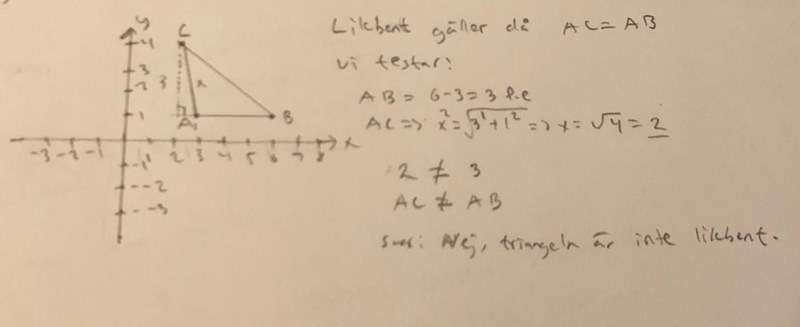 y
4
C
3
2
3
x
1
A
B
x
-3 -2 -1
1 2 3 4 5 6 7 8
-1
-2
-3
Likbent gäller då AC = AB
vi testar:
AB = 6-3 = 3 l.e
AC => x² = √3¹+1² => x = √4 = 2
2 ≠ 3
AC ≠ AB
svar: Nej, triangeln är inte likbent.